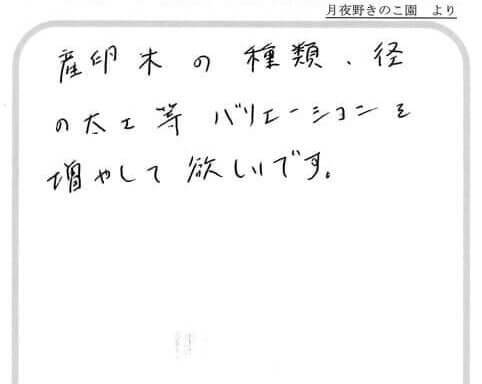 月夜野きのこ園　より
産卵木の種類、径
の太さ等 バリエーションを
増やして欲しいです。